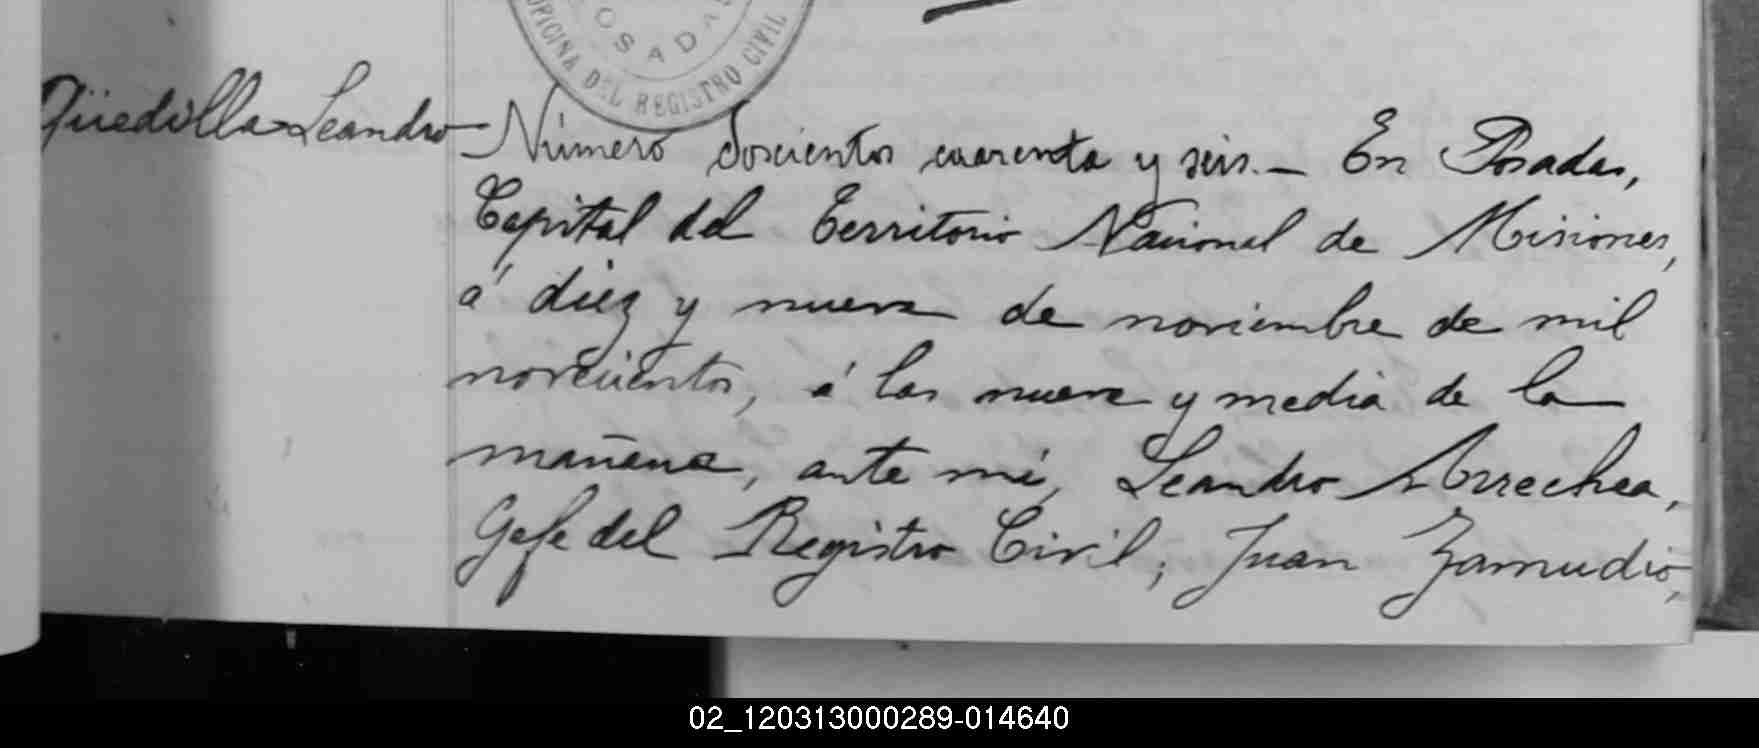 POSADAS
OFICINA DEL REGISTRO CIVIL
Güedilla Leandro
Número doscientos cuarenta y seis. — En Posadas,
Capital del Territorio Nacional de Misiones,
á diez y nueve de noviembre de mil
novecientos, á las nueve y media de la
mañana, ante mí, Leandro Arrechea,
Gefe del Registro Civil, Juan Zamudio,
02_120313000289-014640